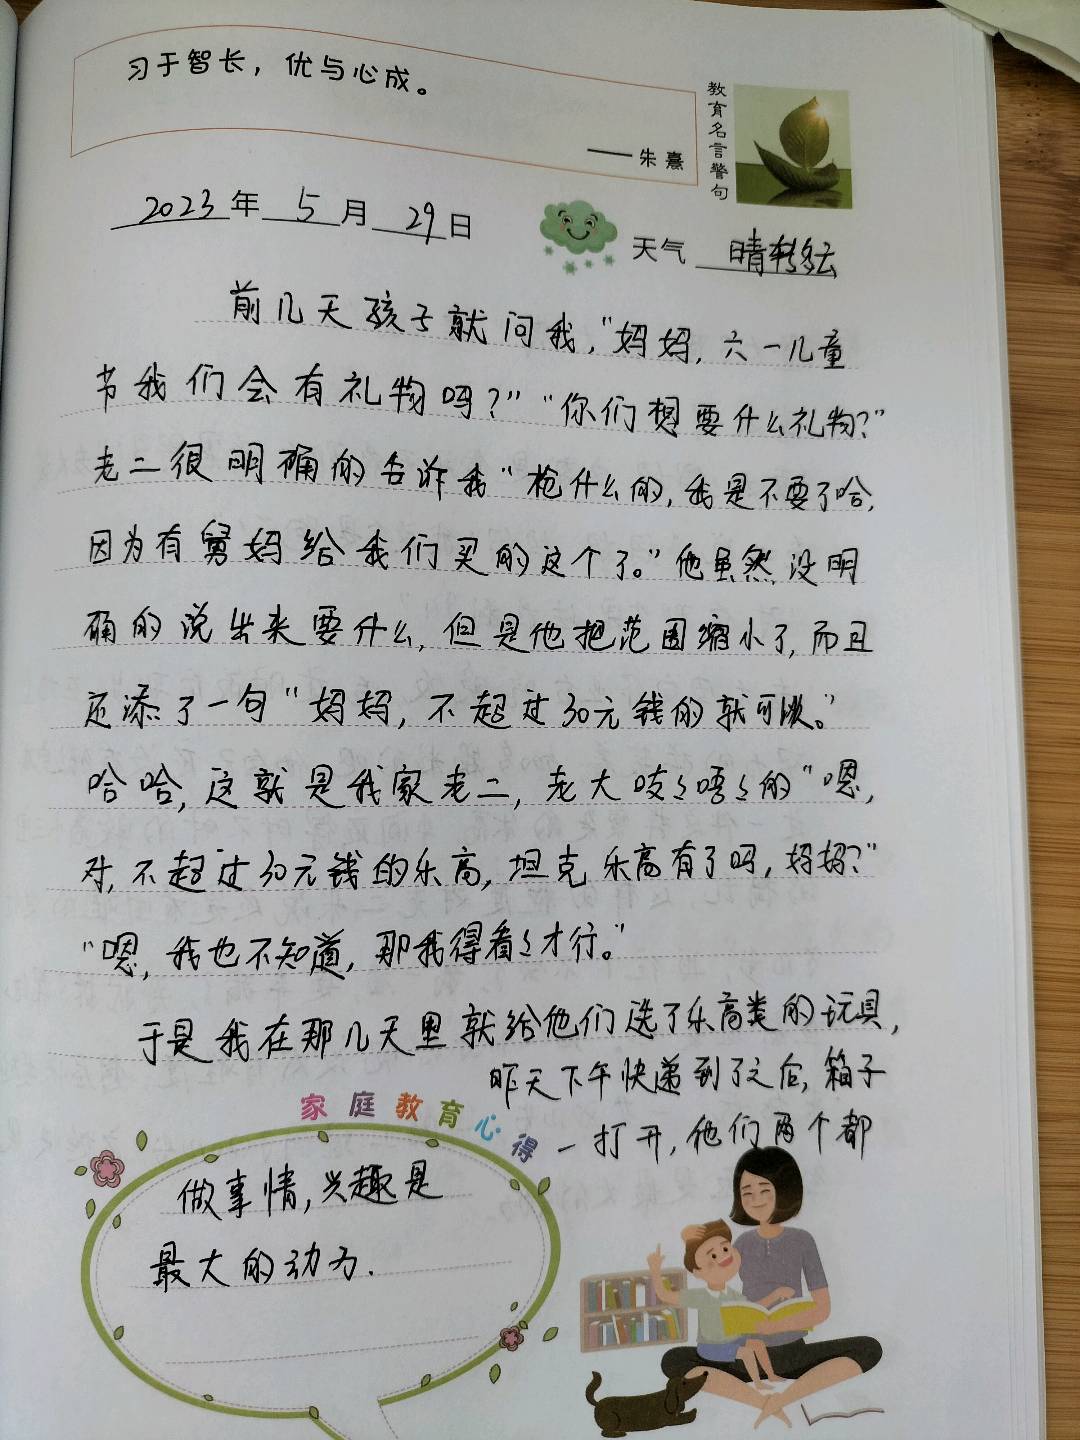 习于智长，优与心成。
——朱熹
教育名言警句
2023年 5月 29日
天气 晴转多云
前几天孩子就问我，"妈妈，六一儿童
节我们会有礼物吗？""你们想要什么礼物？"
老二很明确的告诉我"枪什么的，我是不要了哈，
因为有舅妈给我们买的这个了。"他虽然没明
确的说出来要什么，但是他把范围缩小了，而且
还添了一句"妈妈，不超过30元钱的就可以。"
哈哈，这就是我家老二，老大吱々唔々的"嗯，
对，不超过30元钱的乐高，坦克乐高有了吗，妈妈？"
"嗯，我也不知道，那我得看々才行。"
于是我在那几天里就给他们选了乐高类的玩具，
昨天下午快递到了之后，箱子
一打开，他们两个都
家庭教育心得
做事情，兴趣是
最大的动力.